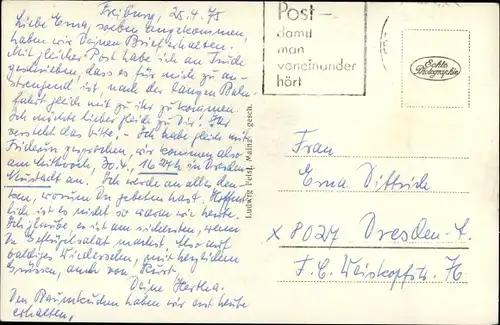 Freiburg, 25.4.75
Liebe Erna, soeben angekommen,
haben wir Deinen Brief erhalten.
Mit gleicher Post habe ich an Trude
geschrieben, dass es für mich zu an-
strengend ist, nach der langen Bahn-
fahrt gleich mit zu ihr zu kommen.
Ich möchte lieber gleich zu Dir! Ihr
versteht das bitte! - Ich habe gleich mit
gesprochen, wir kommen also
am Mittwoch, 30.4., in Dresden
Neustadt an. Ich werde an alles den-
ken, worum Du gebeten hast. Hoffent-
lich ist es nicht so warm wie heute.
Ich glaube, es ist am sichersten, wenn
Du Geflügelsalat machst. Also auf
baldiges Wiedersehen, mit herzlichen
Grüssen, auch von Kurt,
Deine Hertha.
Den Baumkuchen haben wir erst heute
erhalten,
Post-
damit
man
voneinander
hört
Echte
Photographie
Ludwig Feist, Mainz gesch.
Frau
Erna Dittrich
X 8027 Dresden-A.
F. C. Weiskopfstr.